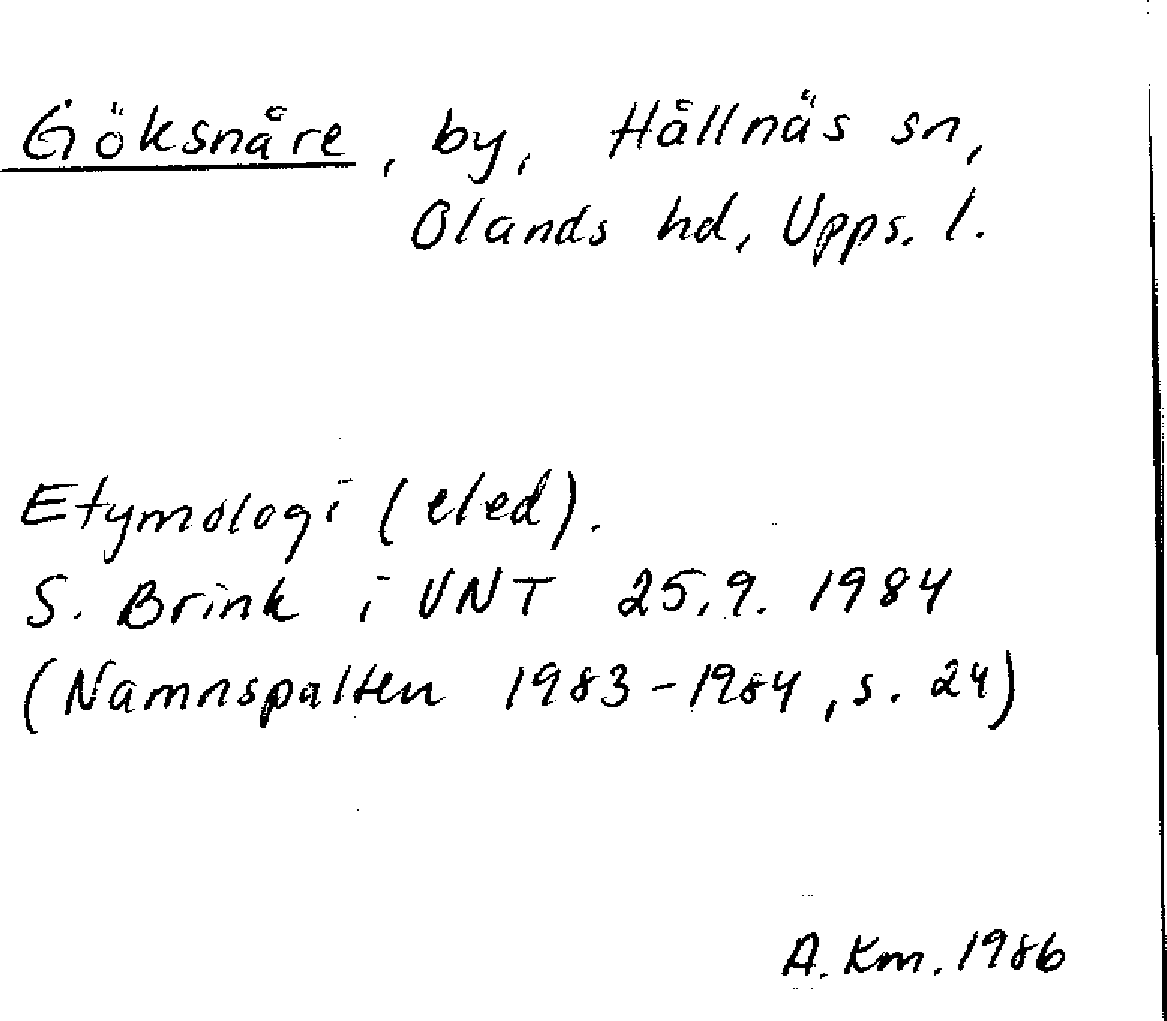 Göksnåre, by, Hållnäs sn,
Olands hd, Upps. l.
Etymologi (eled).
S. Brink i UNT 25.9. 1984
(Namnspalten 1983-1984, s. 24)
A. Km. 1986